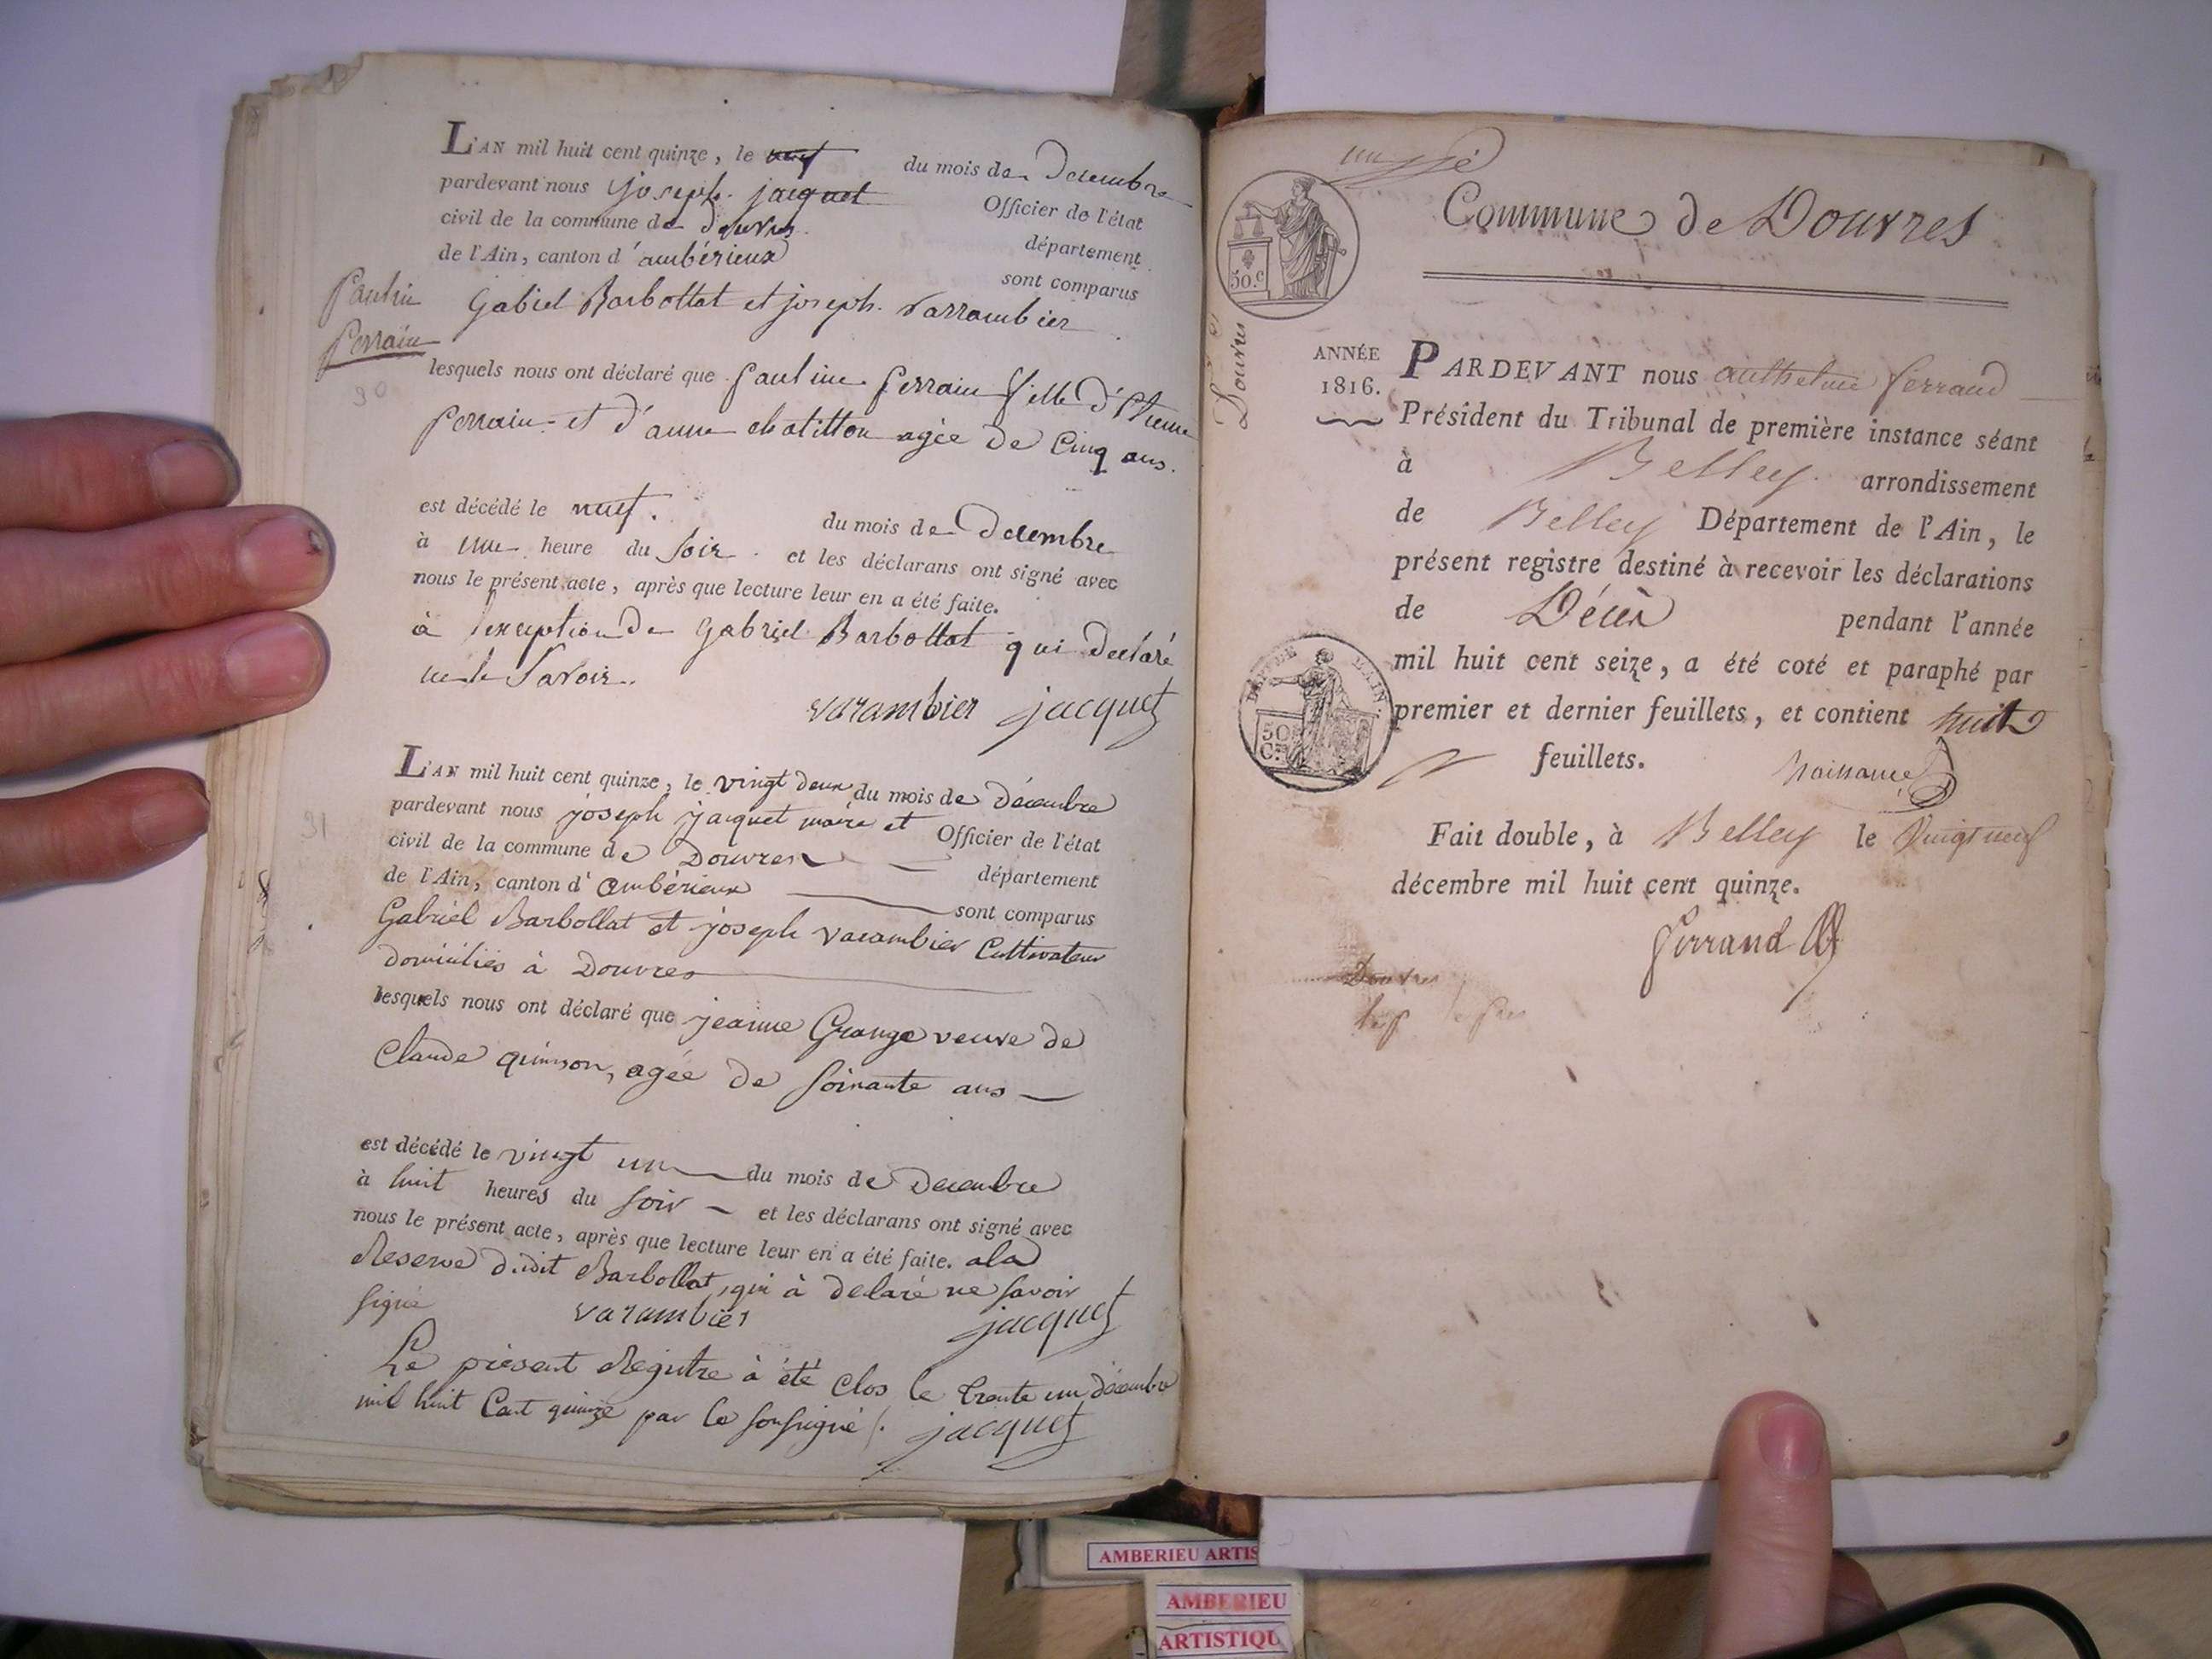 L'AN mil huit cent quinze, le neuf du mois de Decembre
pardevant nous joseph jacquet Officier de l'état
civil de la commune de douvres département
de l'Ain, canton d'ambérieux sont comparus
Pauline
Perrain
Gabiel Barbottat et joseph varrambier
90
lesquels nous ont déclaré que pauline perrain fille d'
perrain et d'anne chatillon agée de Cinq ans.
est décédé le neuf. du mois de Decembre
à une heure du soir et les déclarans ont signé avec
nous le présent acte, après que lecture leur en a été faite.
à l'exception de Gabriel Barbottat qui declaré
ne le Savoir.
varambier jacquet
L'AN mil huit cent quinze, le vingt deux du mois de décembre
pardevant nous joseph jacquet maire et Officier de l'état
civil de la commune de Douvres département
91
de l'Ain, canton d'ambérieux sont comparus
Gabriel Barbollat et joseph varambier Cultivateurs
domiciliés à Douvres
lesquels nous ont déclaré que jeanne Grange veuve de
Claude quinson, agée de soixante ans
est décédé le vingt un du mois de Decembre
à huit heures du soir et les déclarans ont signé avec
nous le présent acte, après que lecture leur en a été faite. a la
Reserve dudit Barbollat, qui à declaré ne savoir
signé varambier jacquet
Le présent Registre à été clos le trente un décembre
mil huit Cent quinze par le soussigné jacquet
Commune de Douvres
50.c
Douvres
ANNÉE
1816.
PARDEVANT nous anthelme ferrand
Président du Tribunal de première instance séant
à Belley arrondissement
de Belley Département de l'Ain, le
présent registre destiné à recevoir les déclarations
de Décès pendant l'année
mil huit cent seize, a été coté et paraphé par
premier et dernier feuillets, et contient huit
feuillets.
L'AIN.
50
C.es
Fait double, à Belley le vingt neuf
décembre mil huit cent quinze.
ferrand
Douvres
AMBERIEU ARTIS
AMBERIEU
ARTISTIQU